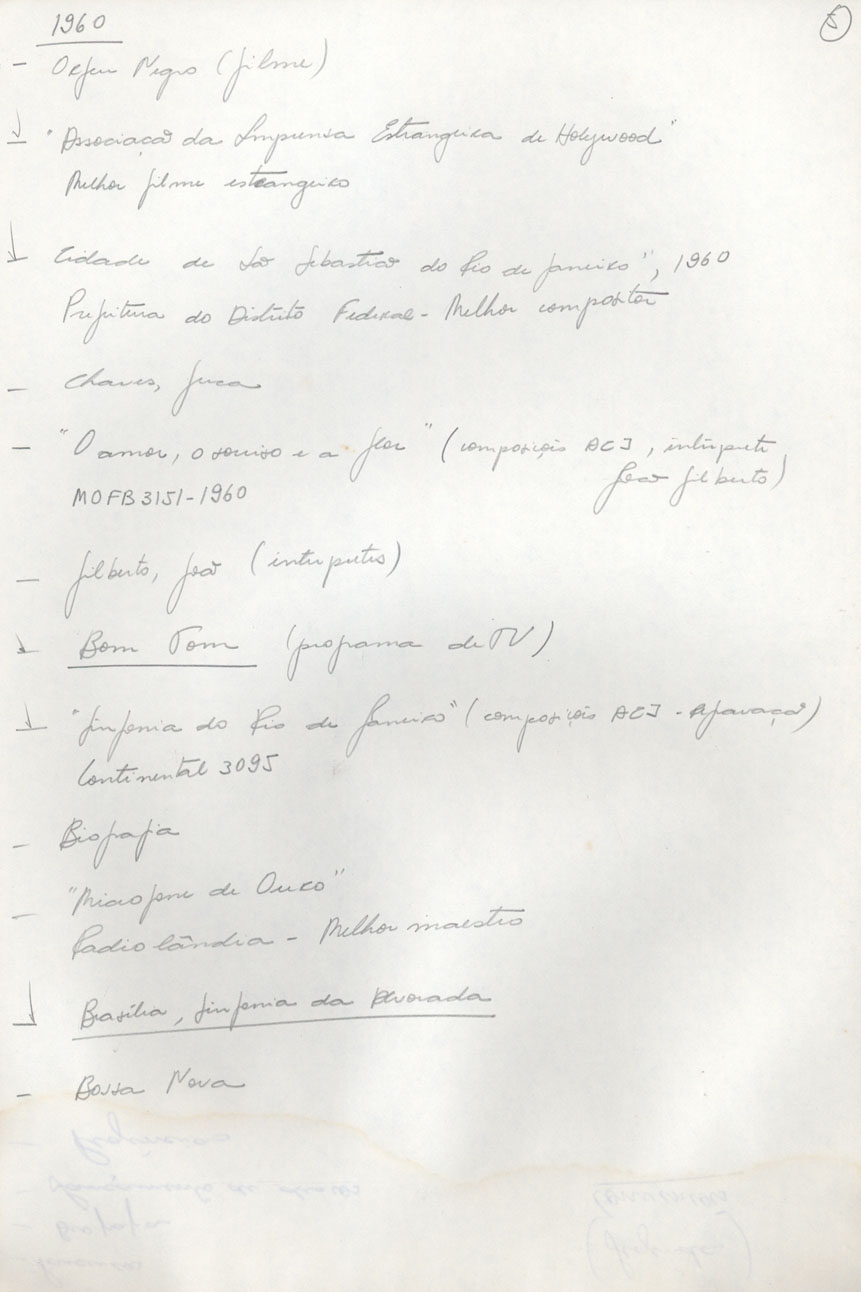 1960
5
- Orfeu Negro (filme)
"Associação da Imprensa Estrangeira de Holywood"
Melhor filme estrangeiro
Cidade de São Sebastião do Rio de Janeiro", 1960
Prefeitura do Distrito Federal - Melhor compositor
- Chaves, Juca
- "O amor, o sorriso e a flor" (composições ACJ, intérprete
João Gilberto)
MOFB 3151-1960
- Gilberto, João (intérpretes)
Bom Tom (programa de TV)
"Sinfonia do Rio de Janeiro" (composições ACJ - gravação)
Continental 3095
- Biografia
- "Microfone de Ouro"
Radiolândia - Melhor maestro
Brasília, Sinfonia da Alvorada
- Bossa Nova